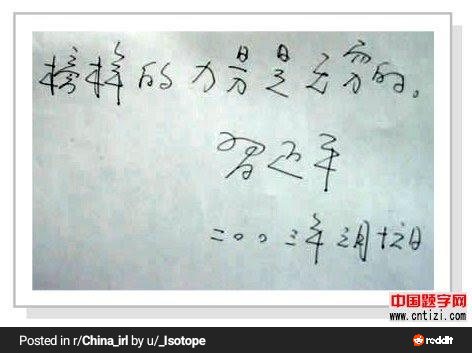 榜样的力量是无穷的。
习近平
二〇〇三年
中国题字网
www.cntizi.com
Posted in r/China_irl by u/_Isotope
reddit